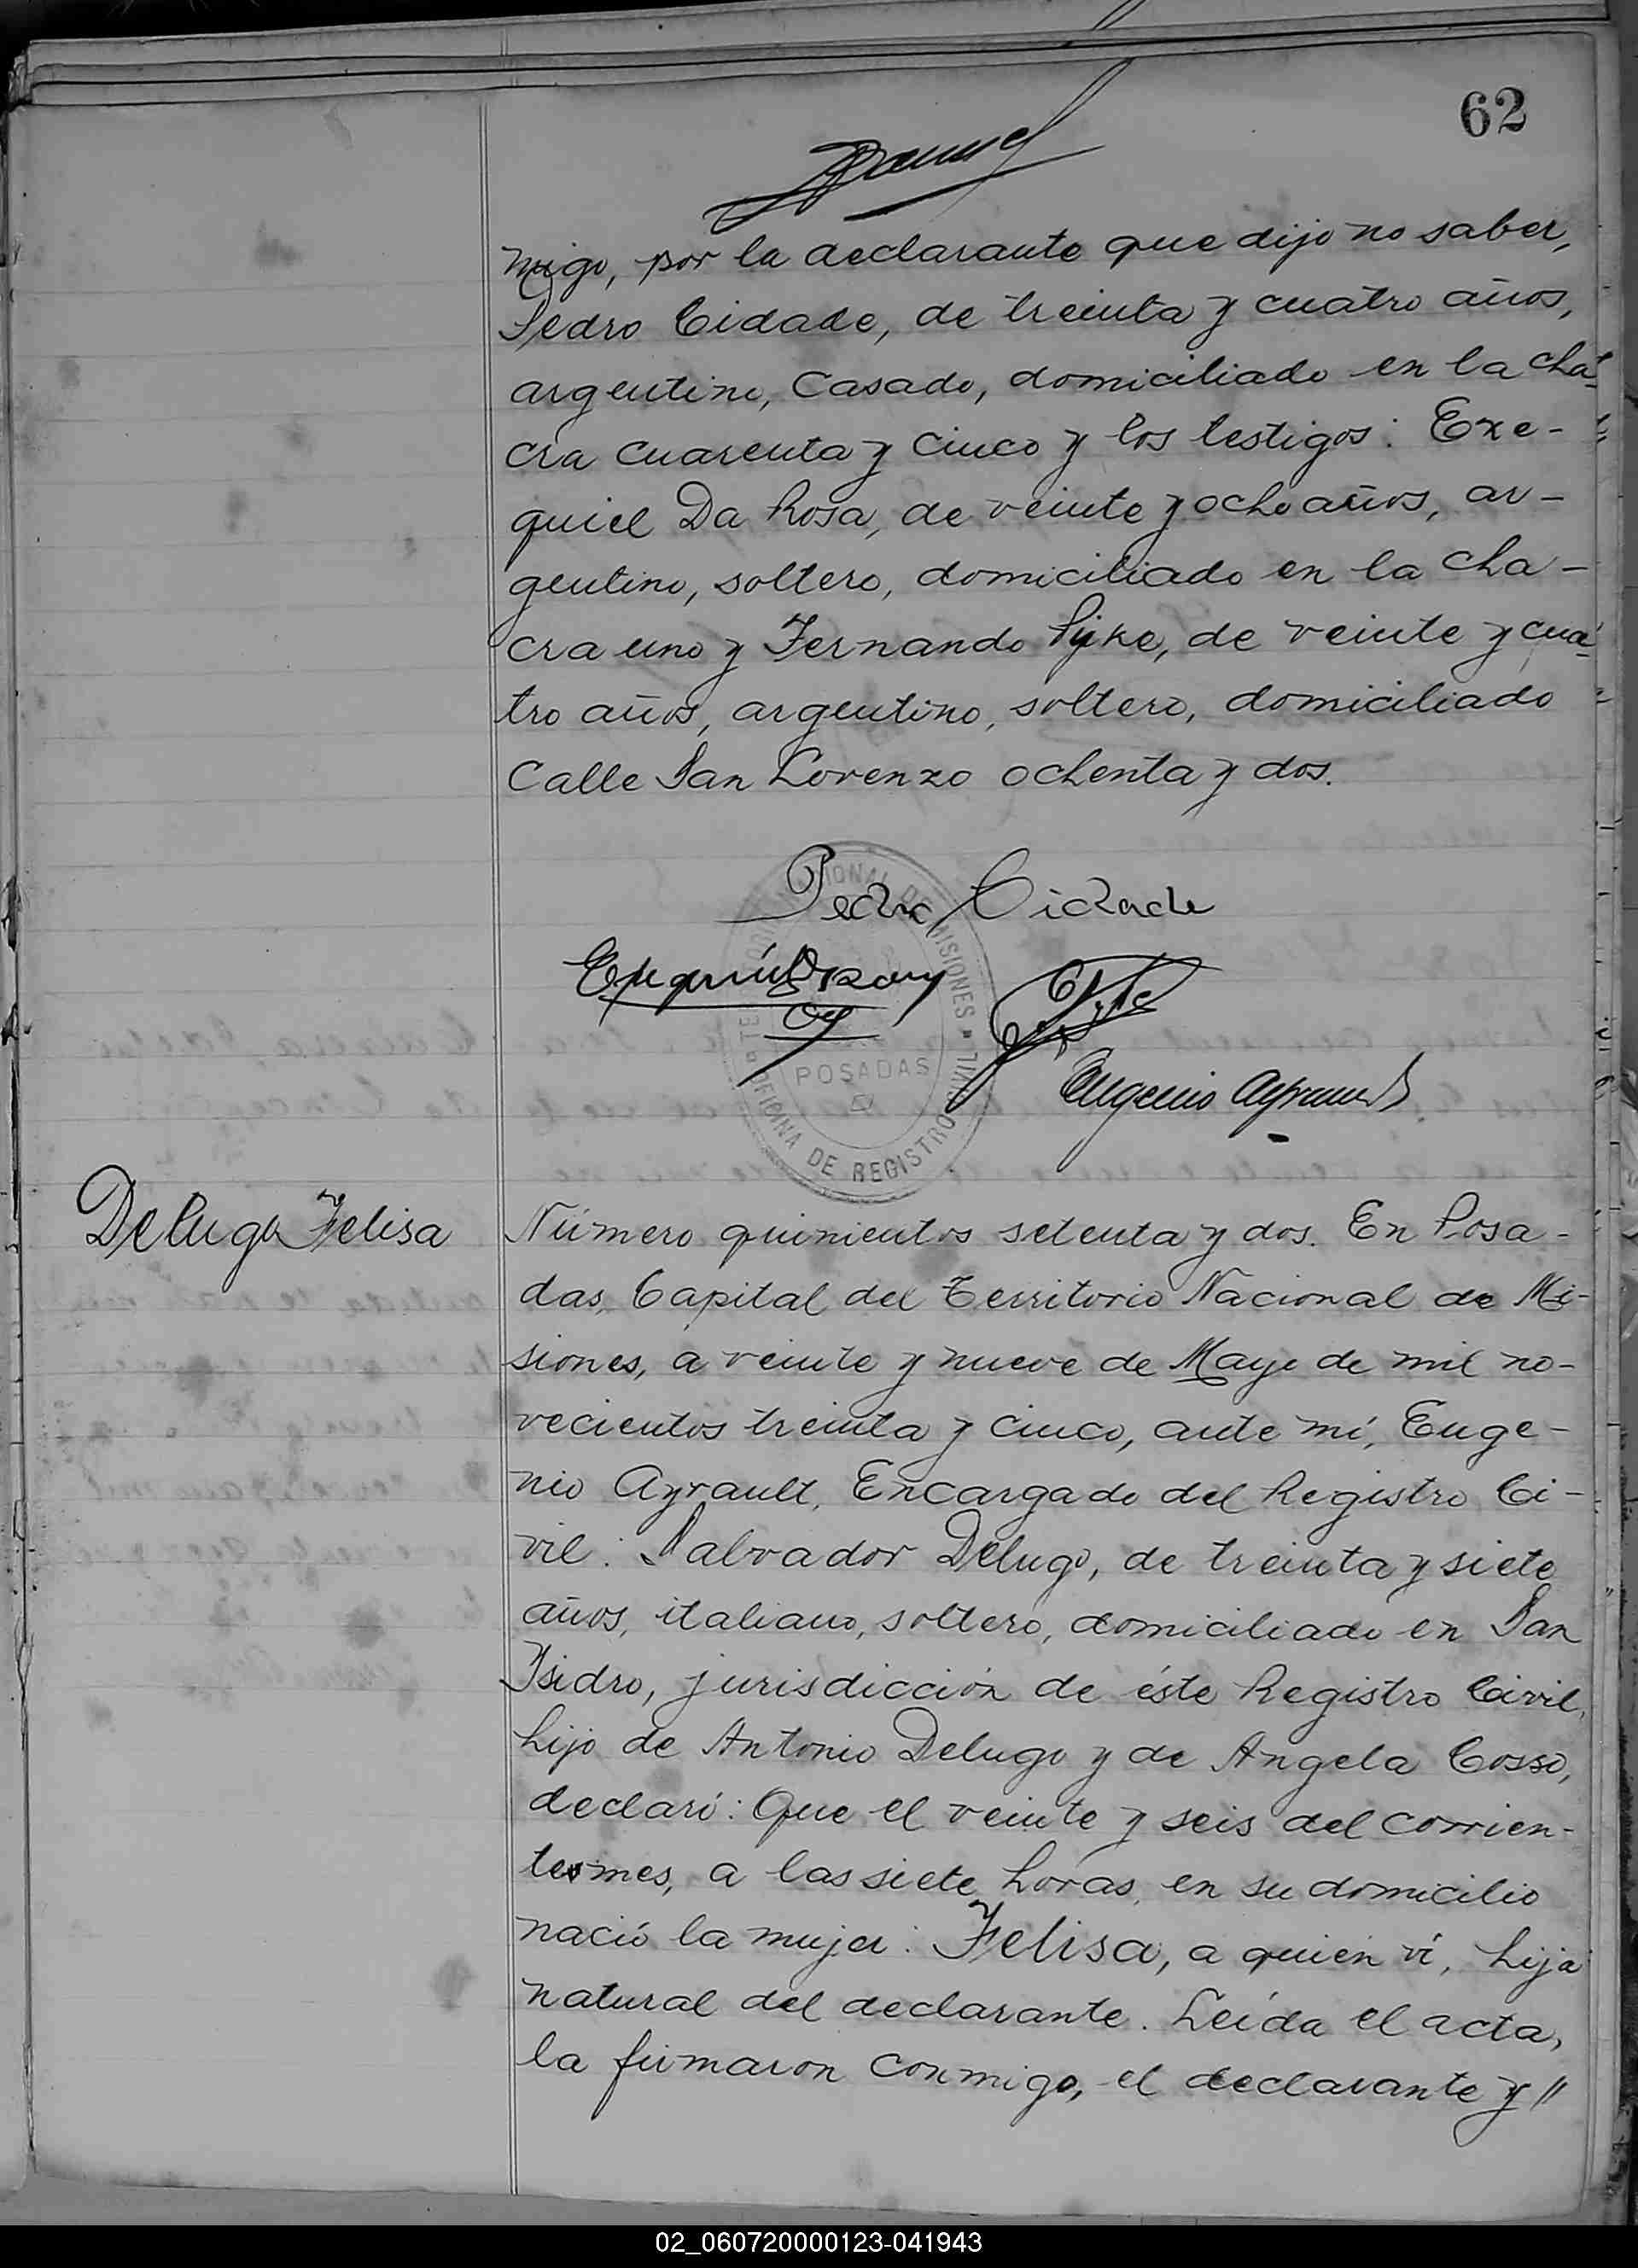 62
migo, por la declarante que dijo no saber,
Pedro Cidade, de treinta y cuatro años,
argentino, Casado, domiciliado en la cha-
cra cuarenta y cinco y los testigos: Exe-
quiel Da Rosa, de veinte y ocho años, ar-
gentino, soltero, domiciliado en la cha-
cra uno y Fernando Pyke, de veinte y cua-
tro años, argentino, soltero, domiciliado
Calle San Lorenzo ochenta y dos.
Pedro Cidade
Eugenio Ayrault
POSADAS
OFICINA DE REGISTRO CIVIL
MISIONES
Delugo Felisa
Número quinientos setenta y dos. En Posa-
das, Capital del Territorio Nacional de Mi-
siones, a veinte y nueve de Mayo de mil no-
vecientos treinta y cinco, ante mí, Euge-
nio Ayrault, Encargado del Registro Ci-
vil: Salvador Delugo, de treinta y siete
años, italiano, soltero, domiciliado en San
Isidro, jurisdicción de éste Registro Civil,
hijo de Antonio Delugo y de Angela Cosso,
declaró: Que el veinte y seis del corrien-
te mes, a las siete horas, en su domicilio
nació la mujer: Felisa, a quien ví, hija
natural del declarante. Leída el acta,
la firmaron conmigo, el declarante y //
02_060720000123-041943